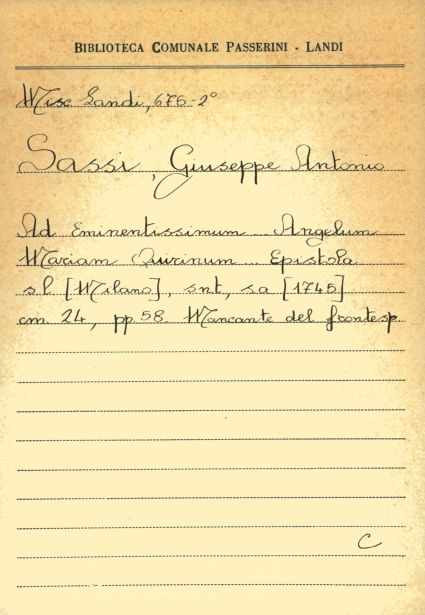 BIBLIOTECA COMUNALE PASSERINI - LANDI
Misc Landi, 676-2°
Sassi, Giuseppe Antonio
Ad Eminentissimum Angelum
Mariam Quirinum Epistola
sl [Milano], snt, sa [1745]
cm. 24, pp 58 Mancante del frontesp.
C